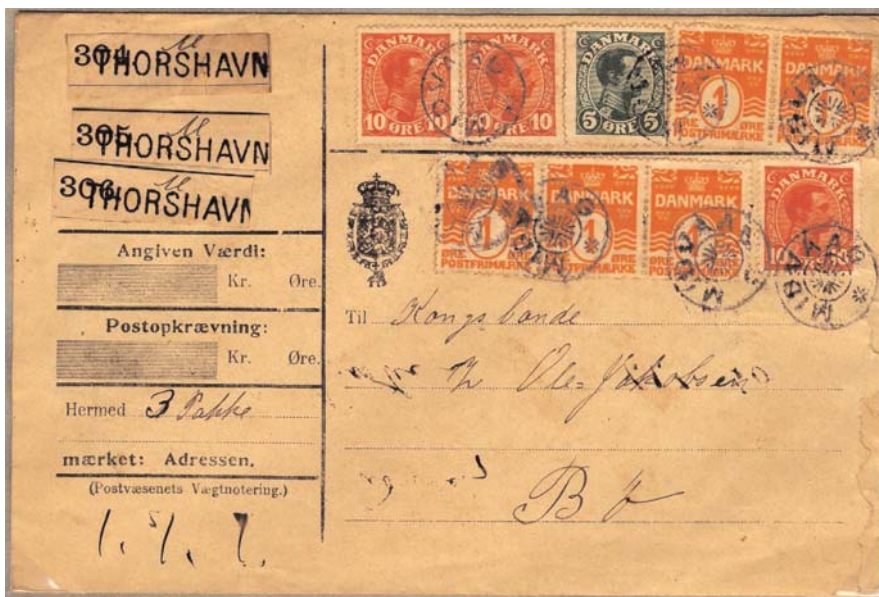 304 THORSHAVN
305 THORSHAVN
306 THORSHAVN
Angiven Værdi:
Kr. Øre.
Postopkrævning:
Kr. Øre.
Hermed 3 Pakke
mærket: Adressen.
(Postvæsenets Vægtnotering.)
DANMARK 10 ØRE 10
DANMARK 10 ØRE 10
DANMARK 5 ØRE 5
DANMARK 1 ØRE ØRE POSTFRIMÆRKE
DANMARK 1 ØRE ØRE POSTFRIMÆRKE
DANMARK 1 ØRE ØRE POSTFRIMÆRKE
DANMARK 1 ØRE ØRE POSTFRIMÆRKE
DANMARK 1 ØRE ØRE POSTFRIMÆRKE
DANMARK 10
MIDVAAG
Til Kongsbonde
Ole Jakobsen
Bø